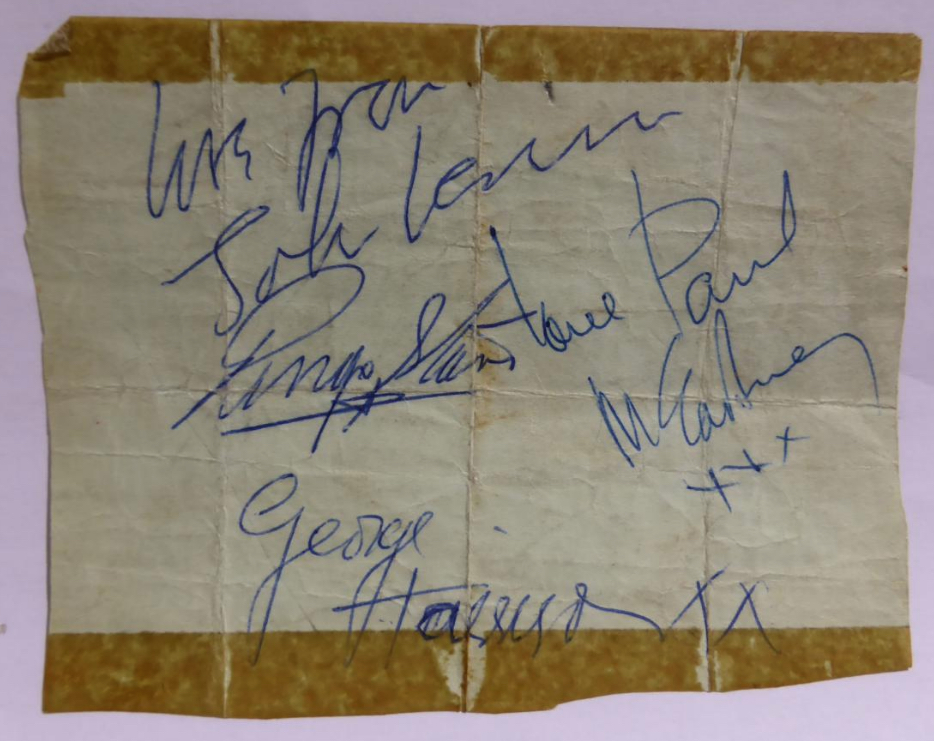 love from
John Lennon
Ringo Starr
love Paul
McCartney
xxx
George
Harrison xx